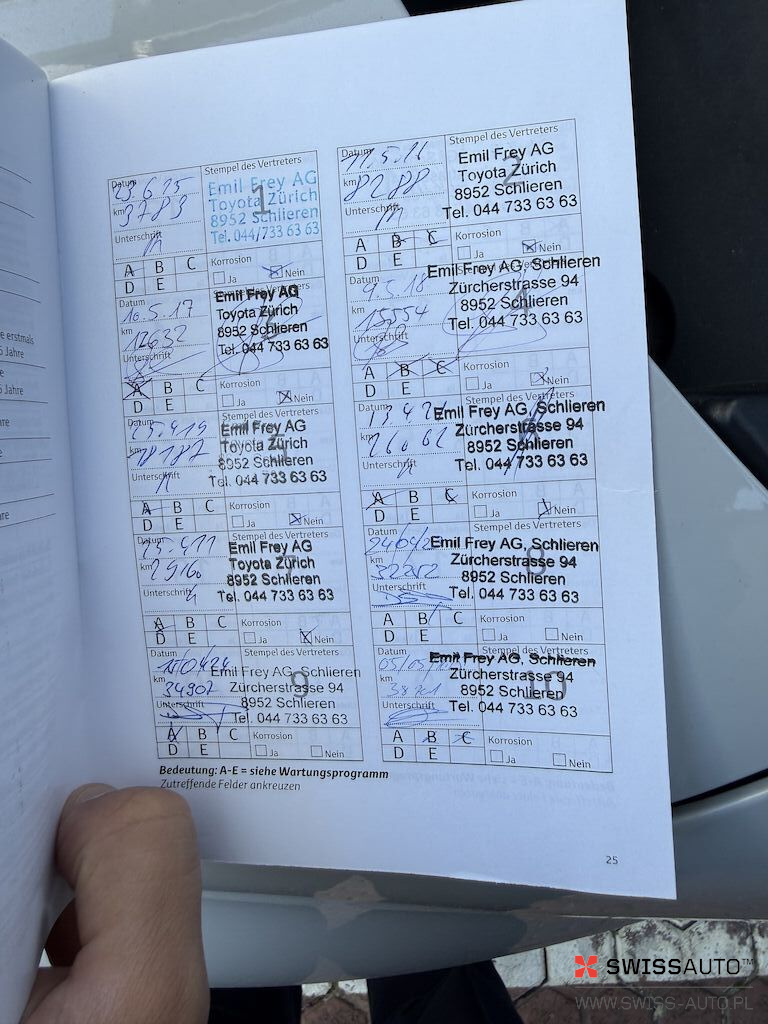 Datum
23.6.15
km
3783
Unterschrift
Stempel des Vertreters
1
Emil Frey AG
Toyota Zürich
8952 Schlieren
Tel. 044/733 63 63
A B C
D E
Korrosion
Ja Nein
Datum
11.5.16
km
8288
Unterschrift
Stempel des Vertreters
2
Emil Frey AG
Toyota Zürich
8952 Schlieren
Tel. 044 733 63 63
A B C
D E
Korrosion
Ja Nein
Datum
10.5.17
km
12632
Unterschrift
Emil Frey AG
Toyota Zürich
8952 Schlieren
Tel. 044 733 63 63
A B C
D E
Korrosion
Ja Nein
9.5.18
km
15554
Unterschrift
4
Emil Frey AG, Schlieren
Zürcherstrasse 94
8952 Schlieren
Tel. 044 733 63 63
A B C
D E
Korrosion
Ja Nein
Datum
km
Unterschrift
Stempel des Vertreters
Emil Frey AG
Toyota Zürich
8952 Schlieren
Tel. 044 733 63 63
A B C
D E
Korrosion
Ja Nein
Datum
km
Unterschrift
Emil Frey AG, Schlieren
Zürcherstrasse 94
8952 Schlieren
Tel. 044 733 63 63
A B C
D E
Korrosion
Ja Nein
Datum
km
29160
Unterschrift
Stempel des Vertreters
7
Emil Frey AG
Toyota Zürich
8952 Schlieren
Tel. 044 733 63 63
A B C
D E
Korrosion
Ja Nein
Datum
km
Unterschrift
Stempel des Vertreters
8
Emil Frey AG, Schlieren
Zürcherstrasse 94
8952 Schlieren
Tel. 044 733 63 63
A B C
D E
Korrosion
Ja Nein
Datum
km
34907
Unterschrift
Stempel des Vertreters
9
Emil Frey AG, Schlieren
Zürcherstrasse 94
8952 Schlieren
Tel. 044 733 63 63
A B C
D E
Korrosion
Ja Nein
Datum
km
Unterschrift
Stempel des Vertreters
10
Emil Frey AG, Schlieren
Zürcherstrasse 94
8952 Schlieren
Tel. 044 733 63 63
A B C
D E
Korrosion
Ja Nein
Bedeutung: A-E = siehe Wartungsprogramm
Zutreffende Felder ankreuzen
25
erstmals
Jahre
Jahre
SWISSAUTO™
WWW.SWISS-AUTO.PL